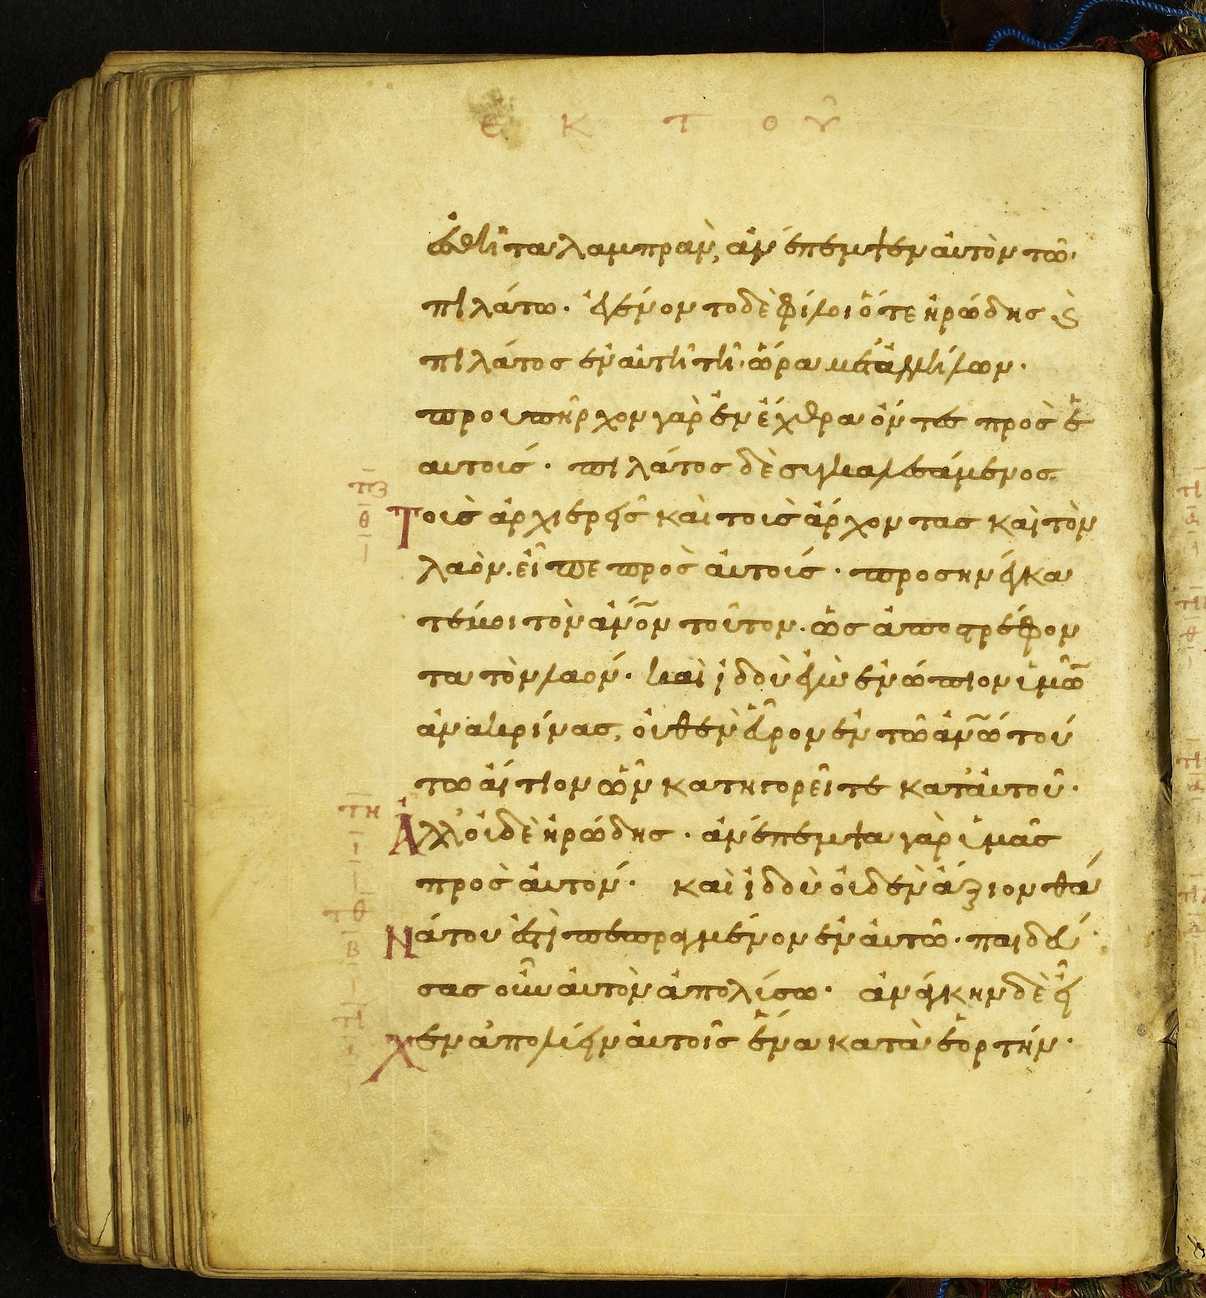 ΕΚ ΤΟΥ
ἐσθῆτα λαμπρὰν, ἀνέπεμψεν αὐτὸν τῶ·
πιλάτω· ἐγένοντο δὲ φίλοι ὅτε ἡρώδης ϗ
πιλάτος ἐν αὐτῆ τῆ ὥρα μετ' ἀλλήλων·
προυπῆρχον γὰρ ἐν ἔχθρα ὄντες πρὸς ἑ
αυτούς· πιλάτος δὲ συγκαλεσάμενος
τοὺς ἀρχιερεῖς καὶ τοὺς ἄρχοντας καὶ τὸν
λαὸν. εἶπε πρὸς αὐτούς· προσηνέγκα
τέ μοι τὸν ἄν̅ο̅ν τοῦτον. ὡς ἀποστρέφον
τα τὸν λαόν· καὶ ἰδοὺ ἐγὼ ἐνώπιον ὑμῶν
ἀνακρίνας, οὐθὲν εὗρον ἐν τῶ ἀν̅ω̅ τού
τω αἴτιον ὧν κατηγορεῖτε κατ' αὐτοῦ·
Ἀλλ' οὐδὲ ἡρώδης· ἀνέπεμψα γὰρ ὑμᾶς
πρὸς αὐτόν· καὶ ἰδοὺ οὐδὲν ἄξιον θα
νάτου ἐστὶ πεπραγμένον ἐν αὐτῶ· παιδεύ
σας οὖν αὐτὸν ἀπολύσω· ἀνάγκην δὲ εἶ
χεν ἀπολύειν αὐτοῖς ἕνα κατὰ ἑορτήν·